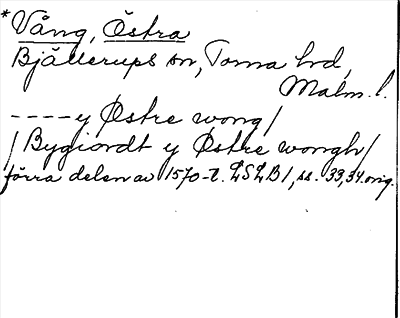 *Vång, Östra
Bjällerups sn, Torna hd,
Malm. l.
---- y Østre wong/
/Bygiordt y Østre wongh/
förra delen av 1570-t. LSLB1, ss. 33, 34 orig.